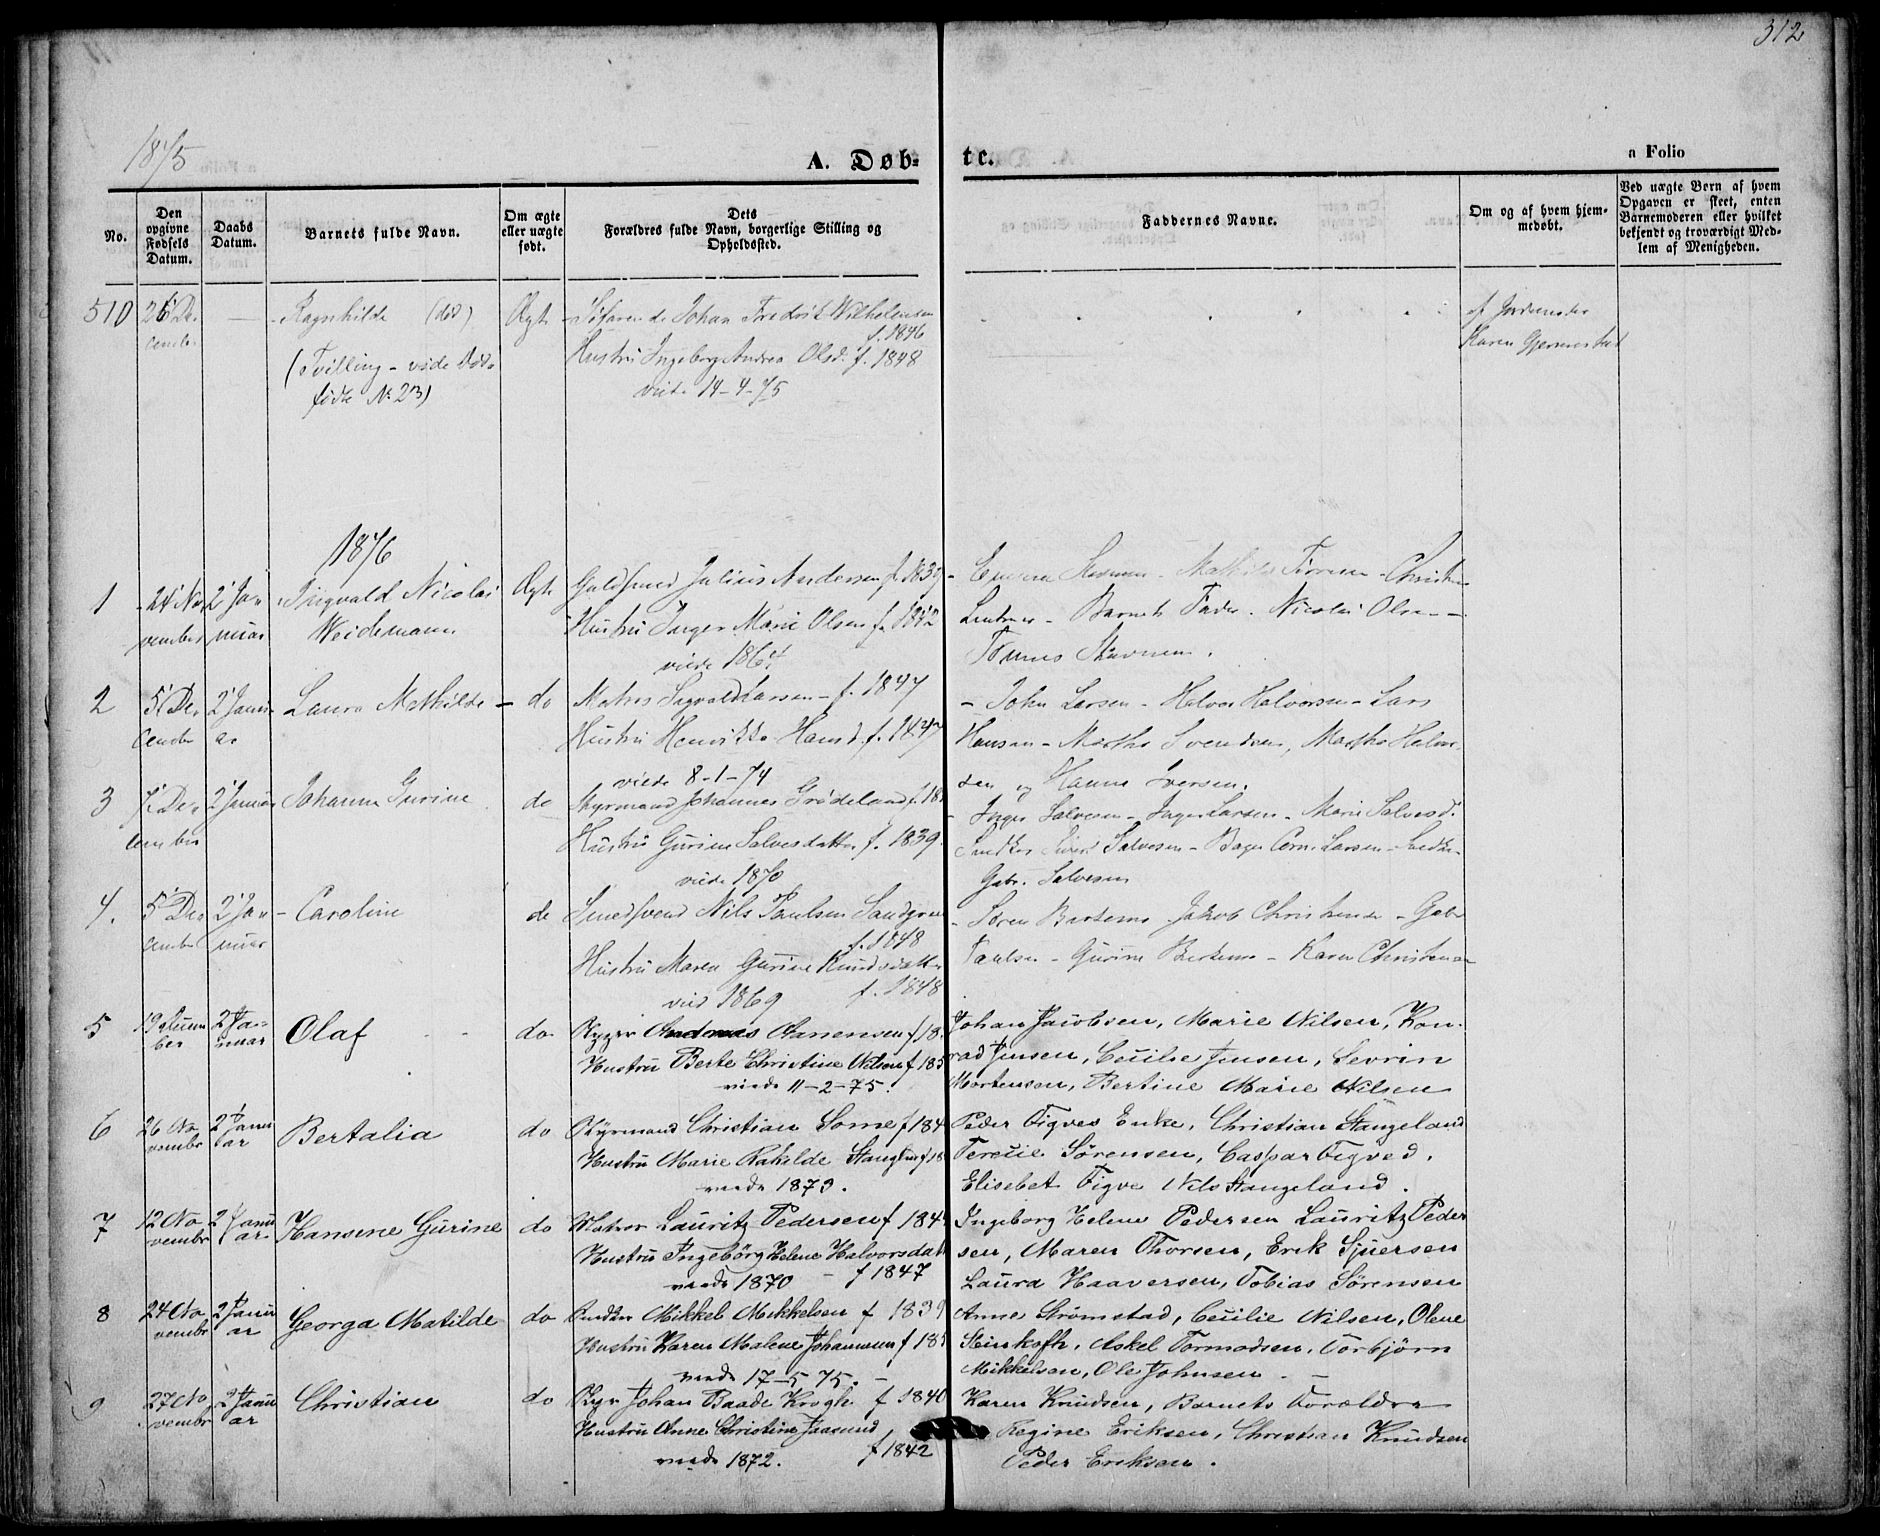 312
1875
A. Døb-
te.
a Folio
No.
Den
opgivne
Fødsels
Datum.
Daabs
Datum.
Barnets fulde Navn.
Om ægte
eller uægte
født.
Dets
Forældres fulde Navn, borgerlige Stilling og
Opholdssted.
Faddernes Navne.
Om og af hvem hjem-
medøbt.
Ved uægte Børn af hvem
Opgaven er skeet, enten
Barnemoderen eller hvilket
bekjendt og troværdigt Med-
lem af Menigheden.
510 26 De- — Ragnhilde (død) Ægte Søfarende Johan Fredrik Wilhelmsen
f. 1846
cember
(Tvilling - vide Død-
fødte No 23)
Hustru Ingeborg Andrea Olsd. f. 1848
viede 14-4-75
af Jordemoder
Karen
1876
1 24 No- 2 Ja- Ingvald Nicolai Ægte Guldsmed Julius Andersen f. 1839
vember nuar Weidemann Hustru Inger Marie Olsen f. 1842
viede 1864
Barnets Fader - Nicolai Olsen -
2 5 De- 2 Janu- Laura Mathilde - do Matros Sigvald Larsen - f. 1847
cember ar Hustru Henrikke Hansd. f. 1847
viede 8-1-74
- John Larsen - Halvor Halvorsen - Lars
Hansen - Martha Svendsen, Martha Halvor-
sen og Hanna Iversen.
3 De- 2 Januar Johanne Gurine do Styrmand Johannes Grødeland f. 18
cember Hustru Gurine Salvesdatter f. 1839
viede 1870
- Inger Salvesen - Inger Larsen - Marie Salvesd.
Sivert Salvesen - Bager Corn. Larsen -
Gabr. Salvesen
4. 5 De- 2 Ja- - Caroline do Smedsvend Nils Paulsen
f. 1848
cember nuar Hustru Maren Gurine Knudsdatter
f. 1848
viede 1869
- Søren Jakob Christensen - Gabr.
Paulsen - Gurine - Karen Christensen
5 19 2 Ja- Olaf do Andreas Aanensen f 18
ber nuar Hustru Berte Christine Nilsen f 185
viede 11-2-75.
Johan Jacobsen, Marie Nilsen, Kon-
rad Jensen, Cecilie Jensen, Sevrin
Mortensen, Bertine Marie Nilsen
6 26 No 2 Janu Bertalia do Styrmand Christian Somme f 184
vember ar Hustru Marie Rakilde f 18
viede 1873.
Peder Tigves Enke, Christian Stangeland
Sørensen, Caspar Tigved,
Elisebet Tigve Nils Stangeland.
7 12 No 2 Janu Hansine Gurine do Matros Lauritz Pedersen f 184
vember ar Hustru Ingebørg Helene Halvorsdatt
viede 1870 - f 1847
Ingeborg Helene Pedersen Lauritz Peder
sen, Maren Thorsen, Erik Sjuersen
Laura Haaversen, Tobias Sørensen
8 24 No 2 Janu Georga Matilde do Mikkel Mikkelsen f 1839
vember ar Hustru Karen Malene Johannesen f 185
viede 17-5-75. -
Anne Strømstad, Cecilie Nilsen, Olene
Askel Tormodsen, Torbjørn
Mikkelsen, Ole Johnsen. -
9 27 No 2 Janu Christian do Johan Baade Krogh f 1840
vember ar Hustru Anne Christine Jaasund
f 1842
viede 1872.
Karen Knudsen, Barnets Forældre
Regine Eriksen, Christian Knudsen
Peder Eriksen.